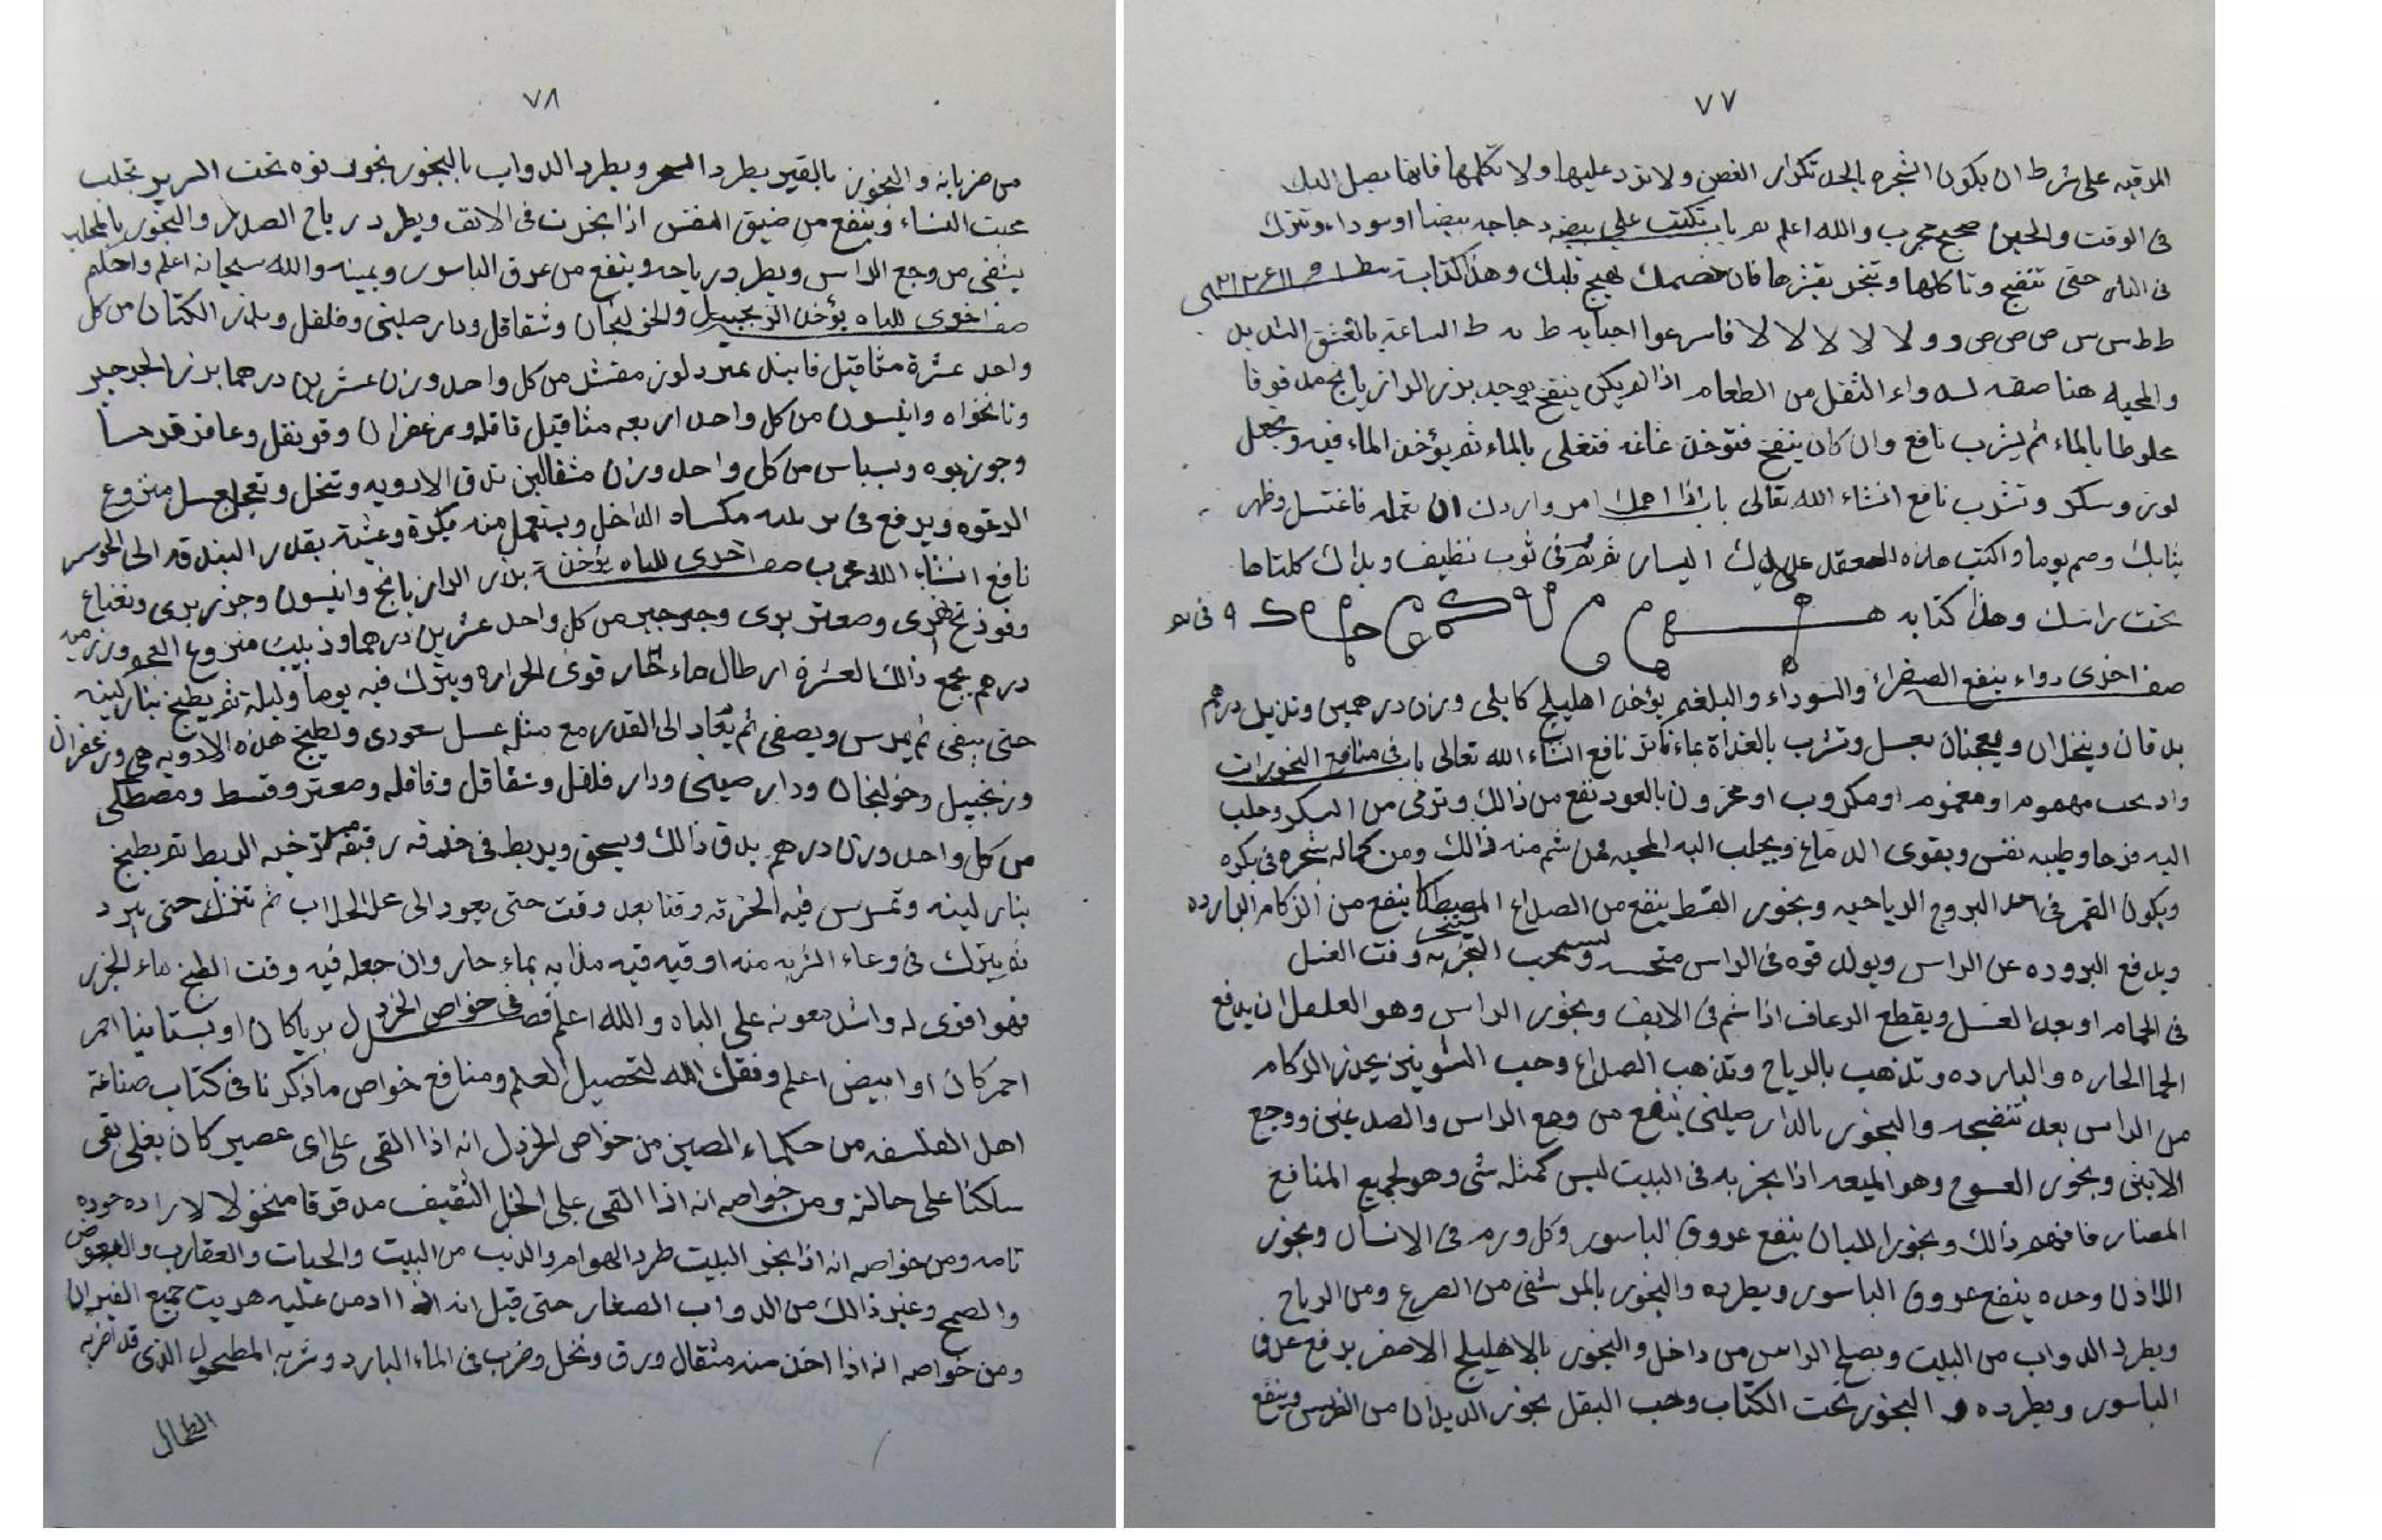 ٧٧
المرقيه على شرط ان يكون الشجره بالحد تكرار الغصن ولا تزد عليها ولا تكلمها فانها يصل اليك
فى الوقت والحين صحيح مجرب والله اعلم باب تكتب على بيضه دجاجه بيضا او سوداء وتترك
فى النار حتى تنضج وتاكلها وتبخر بقشرها فان خصمك يهيج قلبك وهذا كتابته
ط ط س س ص ص ص و و لا لا لا لا لا فاسرعوا اجيبا به ط به ط الساعة بالعشق الشديد
والمحبه هنا صفه لدواء الثقل من الطعام اذا لم يكن ينفخ يوجد بذر الرازيانج مدقوقا
مخلوطا بالماء ثم يشرب نافع وان كان ينفخ فتؤخذ فتغلى بالماء ثم يؤخذ الماء فيه ويجعل
لوز وسكر وتشرب نافع انشاء الله تعالى باب اذا اهمك امر واردت ان تعمله فاغتسل وطهر
ثيابك وصم يوما واكتب هذه على يدك اليسار ثم نم فى ثوب نظيف ويداك كلتاها
تحت راسك وهذا كتابه
صفه اخرى دواء ينفع الصفراء والسوداء والبلغم يؤخذ اهليلج كابلى وزن درهمين وتربد درهم
يدقان وينخلان ويعجنان بعسل وتشرب بالغداة بماء فاتر نافع انشاء الله تعالى باب فى منافع البخورات
واذ بخر مهموم او مغموم او مكروب او محزون بالعود نفع من ذالك وترقى من السكر وجلب
اليه فرحا وطيبه نفس ويقوى الدماغ ويجلب اليه المحبه لمن شم منه ذالك ومن كماله تبخره فى بكره
ويكون القمر فى احد البروج الرياحيه وبخور القسط ينفع من الصداع المصطكا ينفع من الزكام البارده
ويدفع البروده عن الراس ويولد قوه فى الراس وقت الغسل
فى الحمام او بعد الغسل ويقطع الرعاف اذا شم فى الانف وبخور الراس وهو ان يدفع
الحما الحاره والبارده وتذهب بالرياح وتذهب الصداع وحب الشوينز يحدر الزكام
من الراس بعد تنضيجه والبخور بالدارصينى ينفع من وجع الراس والصدغين ووجع
الاذنين وبخور العسوج وهو الميعه اذا بخر به فى البيت ليس كمثله شى وهو لجميع المنافع
المضار فافهم ذالك وبخور اللبان ينفع عروق الباسور وكل ورم فى الانسان وبخور
اللاذن وحده ينفع عروق الباسور ويطرده والبخور بالمر شفى من الصرع ومن الرياح
ويطرد الدواب من البيت ويصلح الراس من داخل والبخور بالاهليلج الاصفر يدفع عرق
الباسور ويطرده والبخور تحت الكتاب وحب البقل بخور الديدان من الضرس وينفع
٧٨
من ضربانه والبخور بالقير يطرد السحر ويطرد الدواب بالبخور بخور نوه تحت السرير تجلب
محبت النساء وينفع من ضيق النفس اذا بخرت فى الانف ويطرد رياح الصدر والبخور بالمحلب
يشفى من وجع الراس ويطرد رياحه وينفع من عرق الباسور ويمينه والله سبحانه اعلم واحكم
صفه اخرى للباه يؤخذ الزنجبيل والخولنجان وشقاقل ودارصينى وفلفل وبذر الكتان من كل
واحد عشرة مثاقيل فانيذ لوز مقشر من كل واحد وزن عشرين درهما بذر الجرجير
ونانخواه وانيسون من كل واحد اربعه مثاقيل قاقله وزعفران وقرنفل وعاقرقرحا
وجوزبوه وبسباس من كل واحد وزن مثقالين تدق الادويه وتنخل وتعجن بعسل منزوع
الرغوه ويرفع فى الداخل ويستعمل منه بكرة وعشية بقدر البندقه الى
نافع انشاء الله مجرب صفه اخرى للباه يؤخذ بذر الرازيانج وانيسون وجزر برى ونعناع
وفوذنج نهرى وصعتر برى وجرجير من كل واحد عشرين درهما وزبيب منزوع العجم وزن
درهم يجمع ذالك لعشرة ارطال ماء حار قوى الحراره ويترك فيه يوما وليلة ثم يطبخ بنار لينه
حتى يبقى ثم يمرس ويصفى ثم يعاد الى القدر مع مثله عسل سعودى وتطبخ هذه الادويه هى وزعفران
وزنجبيل وخولنجان ودارصينى ودار فلفل وشقاقل وقاقله وصعتر وقسط ومصطكى
من كل واحد وزن درهم يدق ذالك ويسحق ويربط فى خرقه رقيقه مرخيه الربط ثم يطبخ
بنار لينه وتمرس فيه الخرقه وقتا بعد وقت حتى يعود الى حد الجلاب ثم تنزل حتى يبرد
ثم يترك فى وعاء الشربه منه اوقيه مذابه بماء حار وان جعله فيه وقت الطبخ ماء الجزر
فهو اقوى له واشد معونه على الباه والله اعلم فصل فى خواص الخردل بريا كان او بستانيا احمر
احمر كان او ابيض اعلم وفقك الله لتحصيل العلم ومنافع خواص ما ذكرنا فى كتاب صناعة
اهل الفلسفه من حكماء الصين من خواص الخردل انه اذا القى على اى عصير كان يغلى بقى
ساكنا على حالته ومن خواصه انه اذا القى على الخل الثقيف مدقوقا منخولا لازاده جوده
تامه ومن خواصه انه اذا بخر البيت طرد الهوام والدبب من البيت والحيات والعقارب والبعوض
والصمج وغير ذالك من الدواب الصغار حتى قيل انه اذا ادمن عليه هربت جميع الفيران
ومن خواصه انه اذا اخذ منه مثقال ورق ونخل وضرب فى الماء البارد وشربه المطحول الذى قد اضر به
الطحال